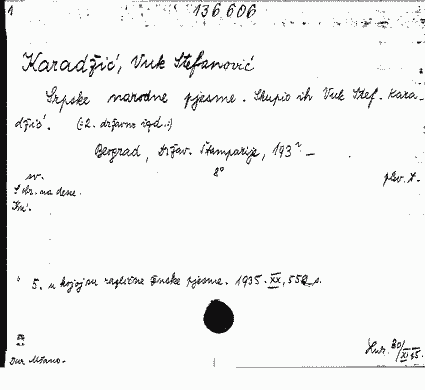 1
136606
Karadžić, Vuk Stefanović
Srpske narodne pjesme. Skupio ih Vuk Stef. Kara-
džić. (:2. državno izd.:)
Beograd, Držav. štamparija, 193² –
8°
sv.
plv. X.
S skr. na desc.
Knj.
5. u kojoj su različne ženske pjesme. 1935. XX, 552 s.
Hur. 30/XI 45.
Dar